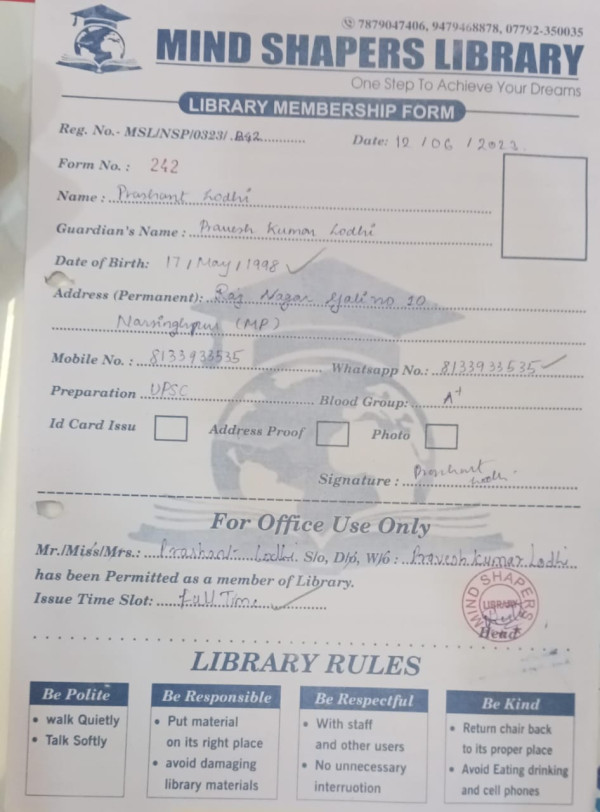 7879047406, 9479468878, 07792-350035
MIND SHAPERS LIBRARY
One Step To Achieve Your Dreams
LIBRARY MEMBERSHIP FORM
Reg. No.- MSL/NSP/0323/.242............ Date: 12 / 06 / 2023
Form No. : 242
Name : Prashant Lodhi
Guardian's Name : Pravesh Kumar Lodhi
Date of Birth: 17 / May / 1998
Address (Permanent): Raj Nagar Gali no 10
Narsinghpur (MP)
Mobile No. : 8133933535 Whatsapp No.: 8133933535
Preparation UPSC Blood Group: A+
Id Card Issu Address Proof Photo
Signature : Prashant Lodhi
For Office Use Only
Mr./Miss/Mrs.: Prashant Lodhi S/o, D/o, W/o : Pravesh Kumar Lodhi
has been Permitted as a member of Library.
Issue Time Slot: Full Time
MIND SHAPERS
LIBRARY
Head
LIBRARY RULES
Be Polite
• walk Quietly
• Talk Softly
Be Responsible
• Put material
on its right place
• avoid damaging
library materials
Be Respectful
• With staff
and other users
• No unnecessary
interruotion
Be Kind
• Return chair back
to its proper place
• Avoid Eating drinking
and cell phones